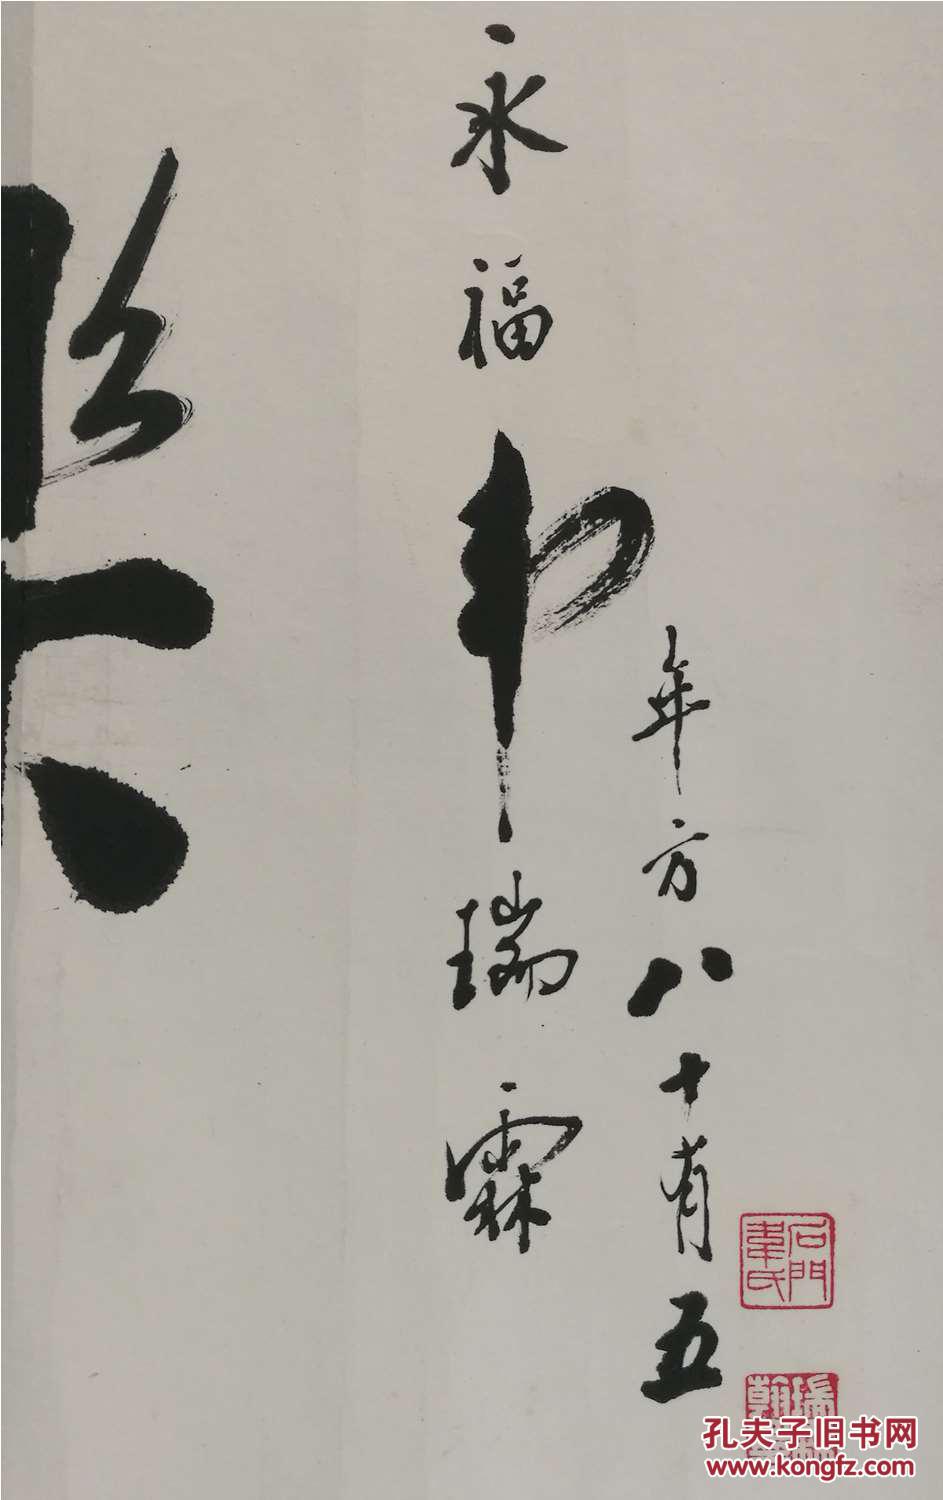 永福韦瑞霖
年方八十有五
石門韋氏
孔夫子旧书网
www.kongfz.com